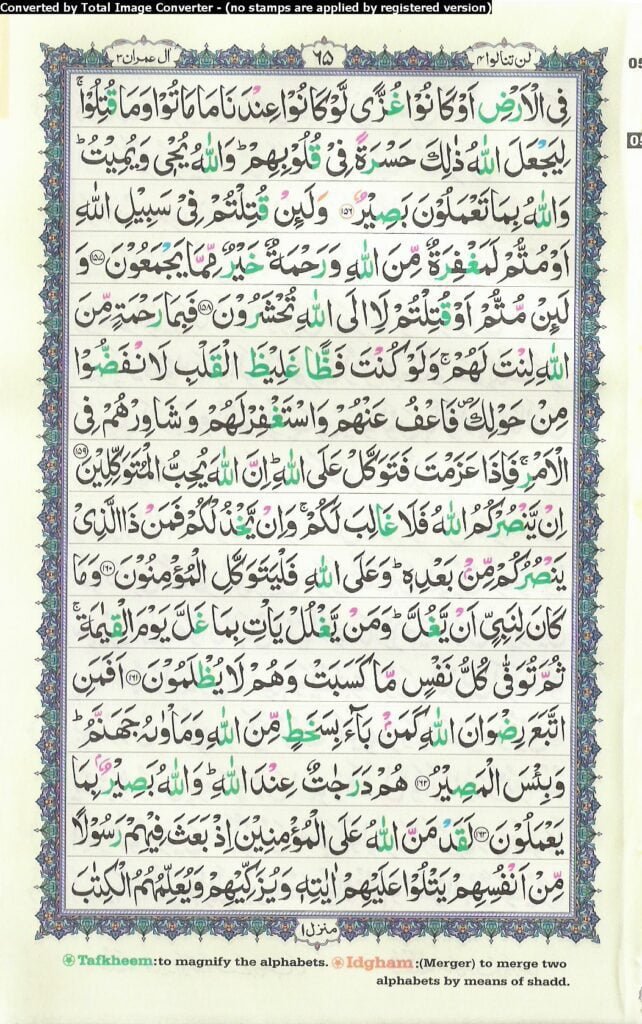 Converted by Total Image Converter - (no stamps are applied by registered version)
اٰل عمرٰن ۳
٦٥
لن تنالوا ۴
05
فِی الْاَرْضِ اَوْ كَانُوْا غُزًّی لَّوْ كَانُوْا عِنْدَنَا مَا مَاتُوْا وَمَا قُتِلُوْا ۚ
لِیَجْعَلَ اللّٰهُ ذٰلِكَ حَسْرَةً فِیْ قُلُوْبِهِمْ ؕ وَاللّٰهُ یُحْیٖ وَیُمِیْتُ ؕ
وَاللّٰهُ بِمَا تَعْمَلُوْنَ بَصِیْرٌ ﴿۱۵۶﴾ وَلَىِٕنْ قُتِلْتُمْ فِیْ سَبِیْلِ اللّٰهِ
اَوْ مُتُّمْ لَمَغْفِرَةٌ مِّنَ اللّٰهِ وَرَحْمَةٌ خَیْرٌ مِّمَّا یَجْمَعُوْنَ ﴿۱۵۷﴾ وَ
لَىِٕنْ مُّتُّمْ اَوْ قُتِلْتُمْ لَاۡاِلَی اللّٰهِ تُحْشَرُوْنَ ﴿۱۵۸﴾ فَبِمَا رَحْمَةٍ مِّنَ
اللّٰهِ لِنْتَ لَهُمْ ۚ وَلَوْ كُنْتَ فَظًّا غَلِیْظَ الْقَلْبِ لَانْفَضُّوْا
مِنْ حَوْلِكَ ۪ فَاعْفُ عَنْهُمْ وَاسْتَغْفِرْ لَهُمْ وَشَاوِرْهُمْ فِی
الْاَمْرِ ۚ فَاِذَا عَزَمْتَ فَتَوَكَّلْ عَلَی اللّٰهِ ؕ اِنَّ اللّٰهَ یُحِبُّ الْمُتَوَكِّلِیْنَ ﴿۱۵۹﴾
اِنْ یَّنْصُرْكُمُ اللّٰهُ فَلَا غَالِبَ لَكُمْ ۚ وَاِنْ یَّخْذُلْكُمْ فَمَنْ ذَا الَّذِیْ
یَنْصُرُكُمْ مِّنْۢ بَعْدِهٖ ؕ وَعَلَی اللّٰهِ فَلْیَتَوَكَّلِ الْمُؤْمِنُوْنَ ﴿۱۶۰﴾ وَمَا
كَانَ لِنَبِیٍّ اَنْ یَّغُلَّ ؕ وَمَنْ یَّغْلُلْ یَاْتِ بِمَا غَلَّ یَوْمَ الْقِیٰمَةِ ۚ
ثُمَّ تُوَفّٰی كُلُّ نَفْسٍ مَّا كَسَبَتْ وَهُمْ لَا یُظْلَمُوْنَ ﴿۱۶۱﴾ اَفَمَنِ
اتَّبَعَ رِضْوَانَ اللّٰهِ كَمَنْۢ بَآءَ بِسَخَطٍ مِّنَ اللّٰهِ وَمَاْوٰىهُ جَهَنَّمُ ؕ
وَبِئْسَ الْمَصِیْرُ ﴿۱۶۲﴾ هُمْ دَرَجٰتٌ عِنْدَ اللّٰهِ ؕ وَاللّٰهُ بَصِیْرٌۢ بِمَا
یَعْمَلُوْنَ ﴿۱۶۳﴾ لَقَدْ مَنَّ اللّٰهُ عَلَی الْمُؤْمِنِیْنَ اِذْ بَعَثَ فِیْهِمْ رَسُوْلًا
مِّنْ اَنْفُسِهِمْ یَتْلُوْا عَلَیْهِمْ اٰیٰتِهٖ وَیُزَكِّیْهِمْ وَیُعَلِّمُهُمُ الْكِتٰبَ
منزل ۱
Tafkheem:to magnify the alphabets. Idgham:(Merger) to merge two
alphabets by means of shadd.